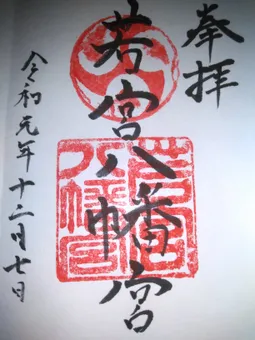 奉拝
若宮八幡宮
令和元年十二月七日
若宮八幡宮